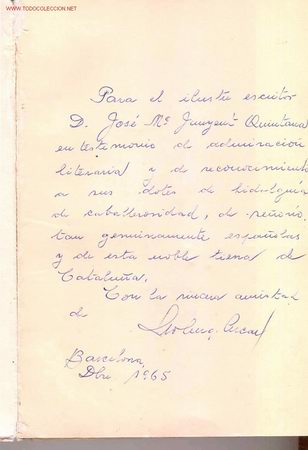 WWW.TODOCOLECCION.NET
Para el ilustre escritor
D. José Mª Junyent Quintana
en testimonio de admiración
literaria y de reconocimiento
a sus dotes de hidalguía
de caballerosidad, de señorío,
tan genuinamente españolas
y de esta noble tierra de
Cataluña.
Con la nueva amistad
de
Barcelona,
Dbre 1965